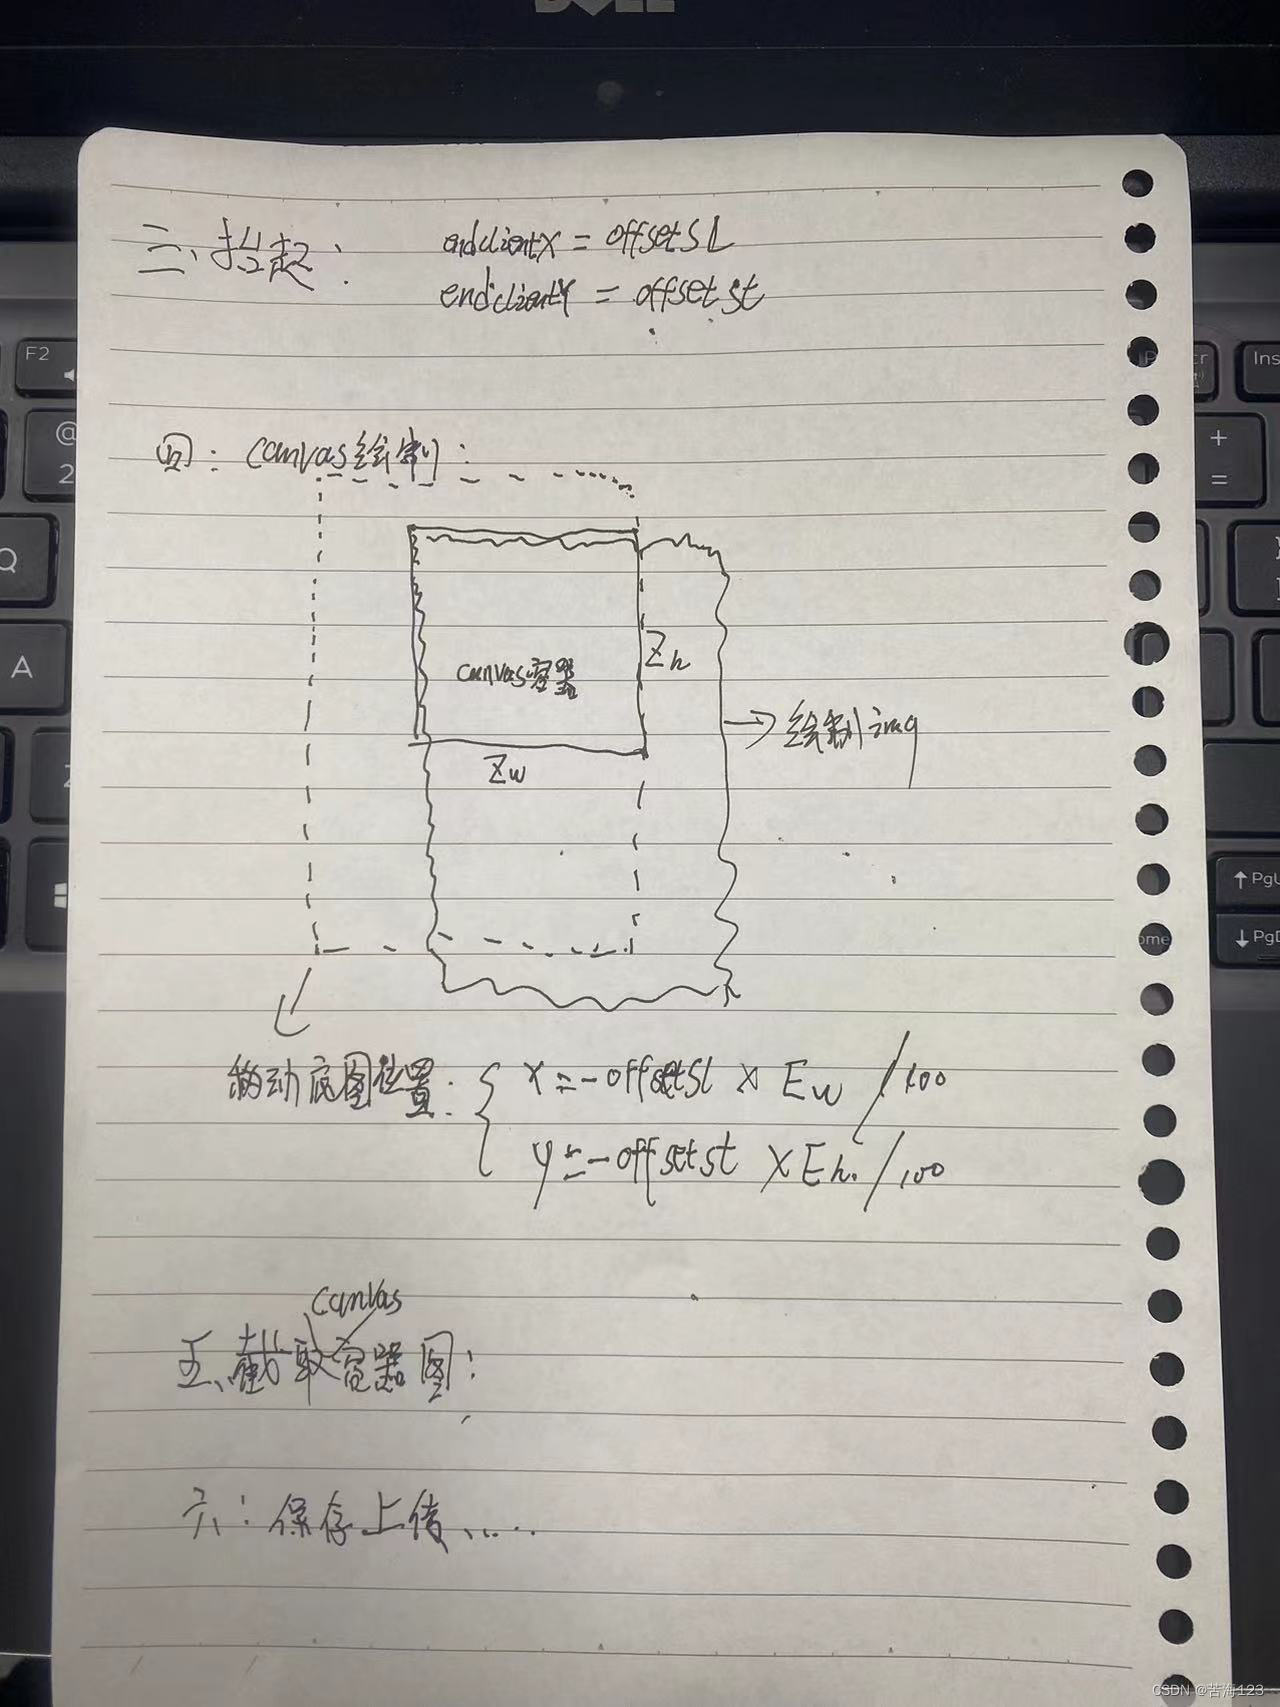 DELL
三、抬起： endclientX = offsetSL
endclientY = offsetSt
四：canvas绘制：
canvas容器
Zh
Zw
→绘制img
移动底图位置： { x = -offsetSl × Ew /100
y = -offsetSt × Eh /100
canvas
五、截取容器图：
六：保存上传、....
F2
@
2
Q
A
Z
Ins
+
=
↑ PgU
↓ PgD
ome
CSDN @苦海123